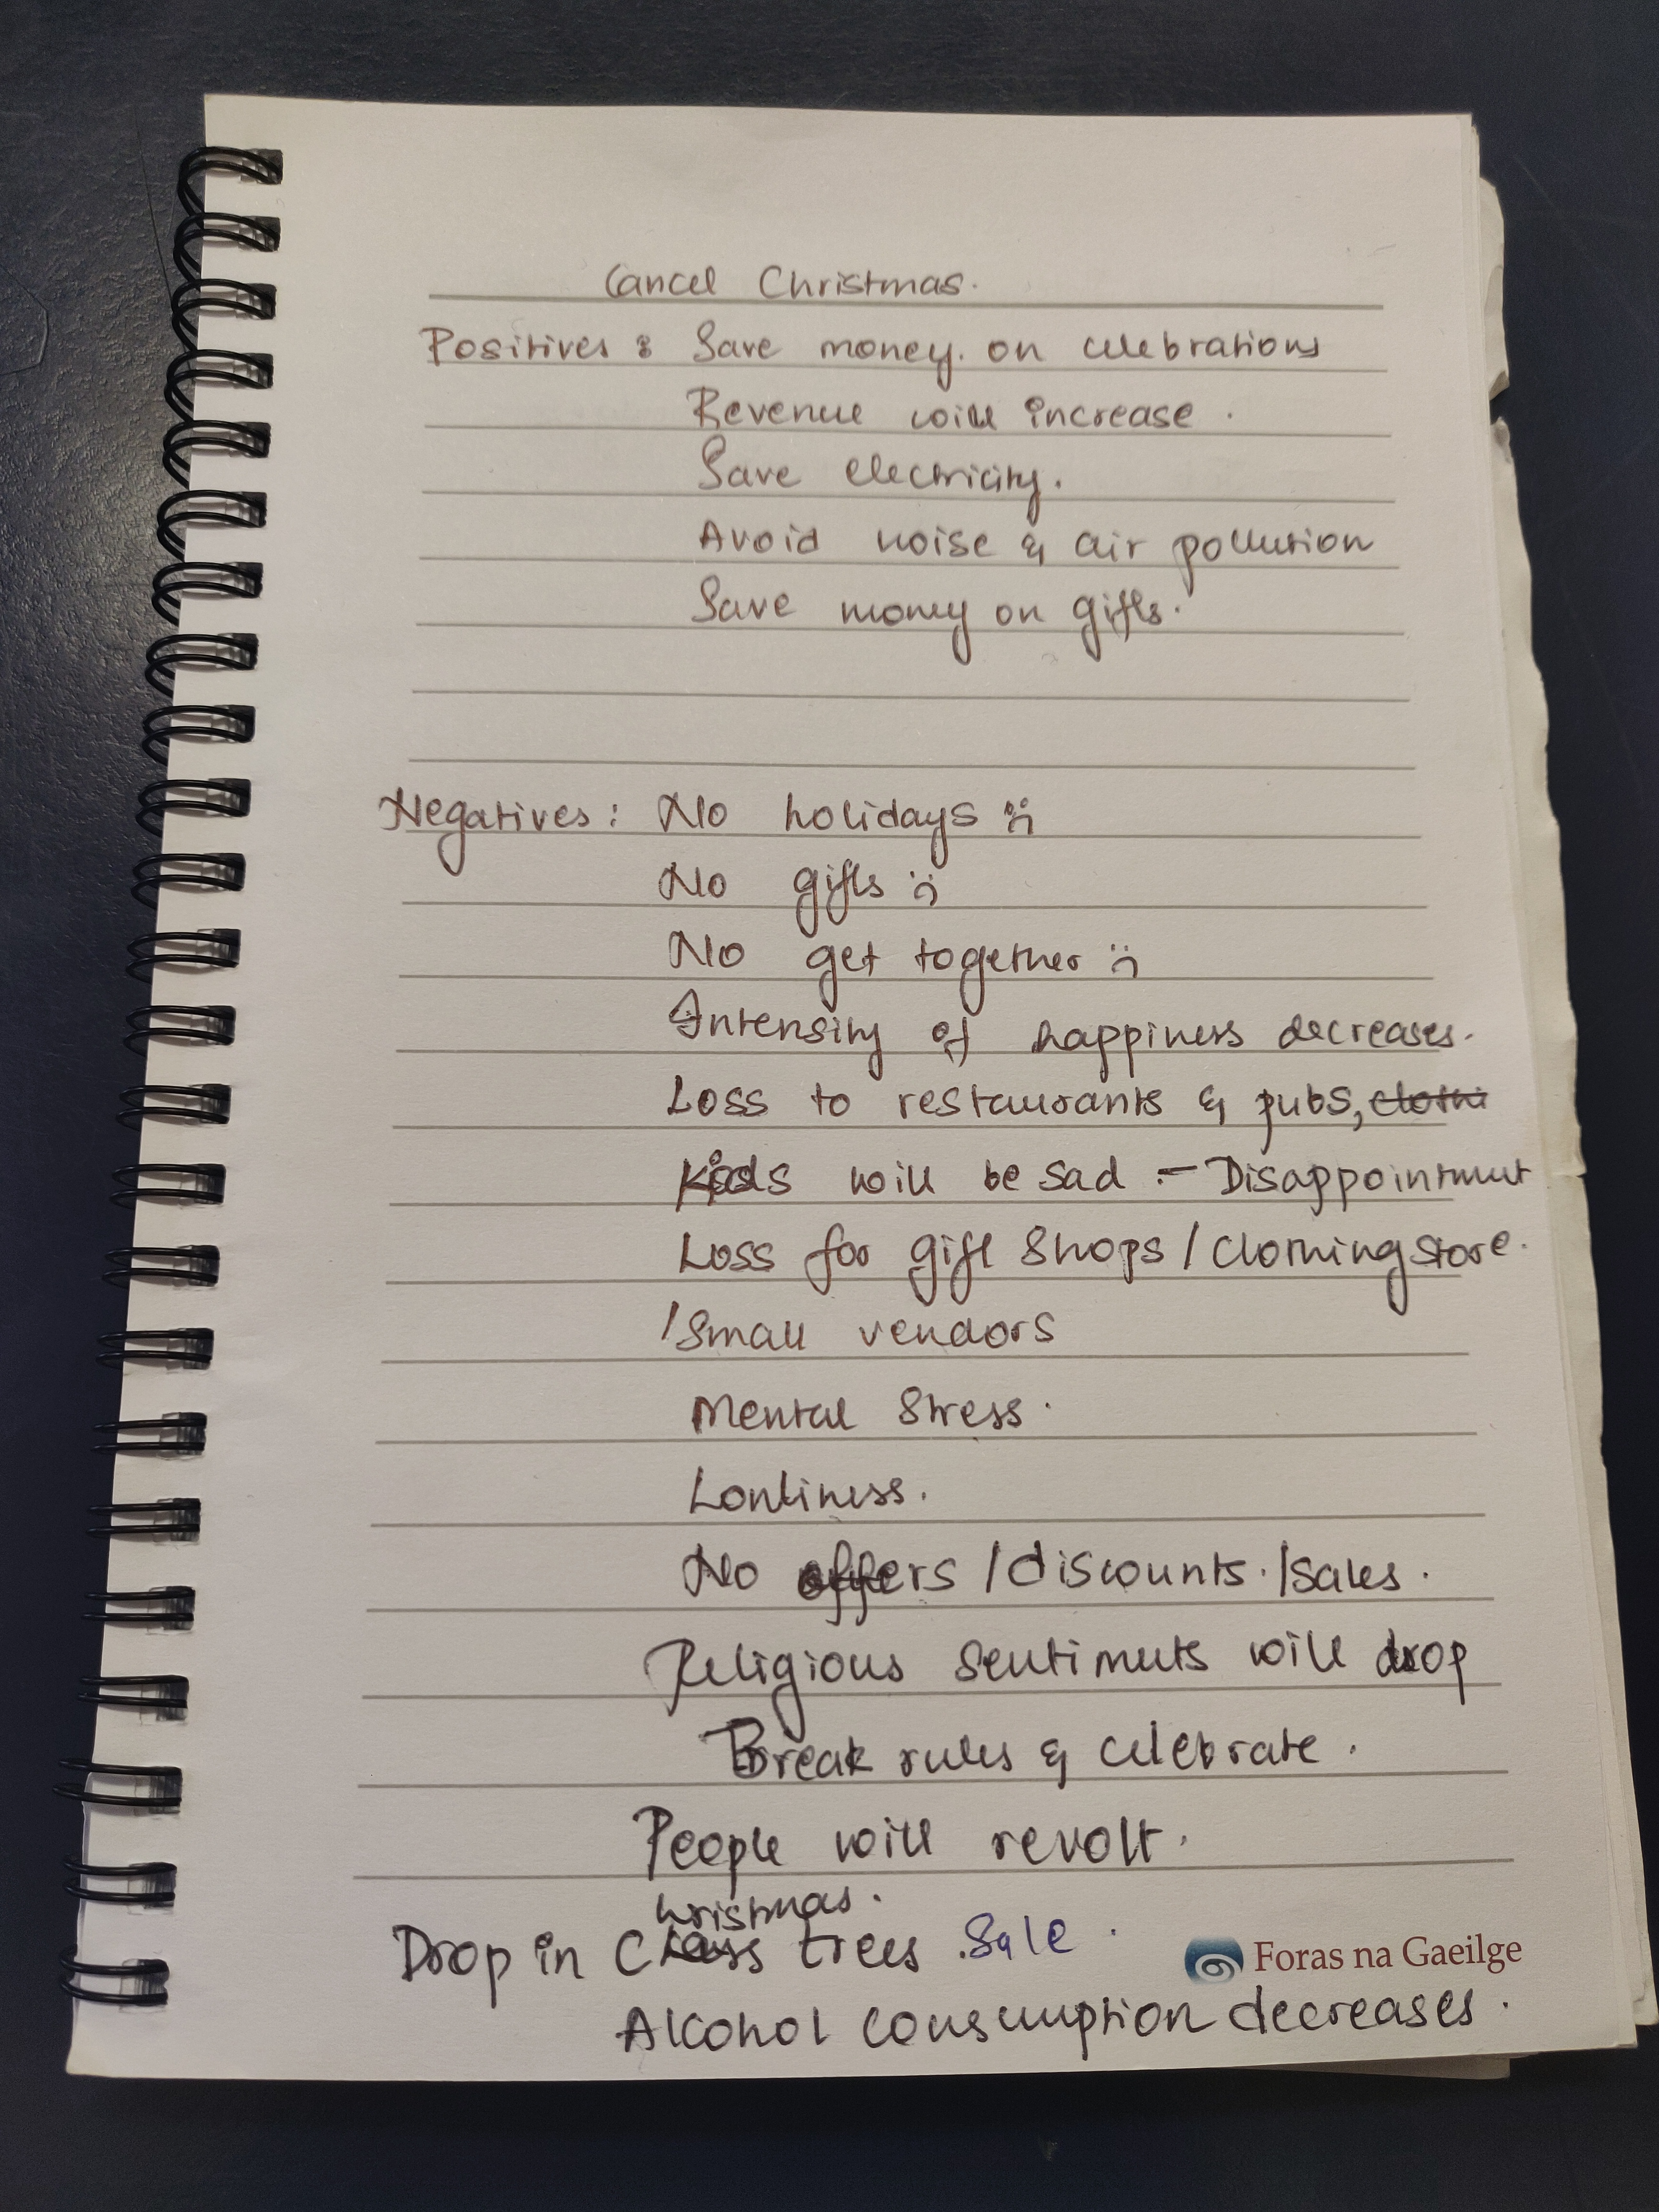 Cancel Christmas.
Positives : Save money. on celebrations
Revenue will increase.
Save electricity.
Avoid noise & air pollution
Save money on gifts.
Negatives : No holidays :(
No gifts :(
No get together :(
Intensity of happiness decreases.
Loss to restaurants & pubs, clothi
Kids will be sad :- Disappointment
Loss for gift shops / Clothing store.
/ Small vendors
Mental Stress.
Lonliness.
No offers / discounts. / sales.
Religious sentiments will drop
Break rules & celebrate.
People will revolt.
hristmas.
Drop in C trees .Sale.
Foras na Gaeilge
Alcohol consumption decreases.